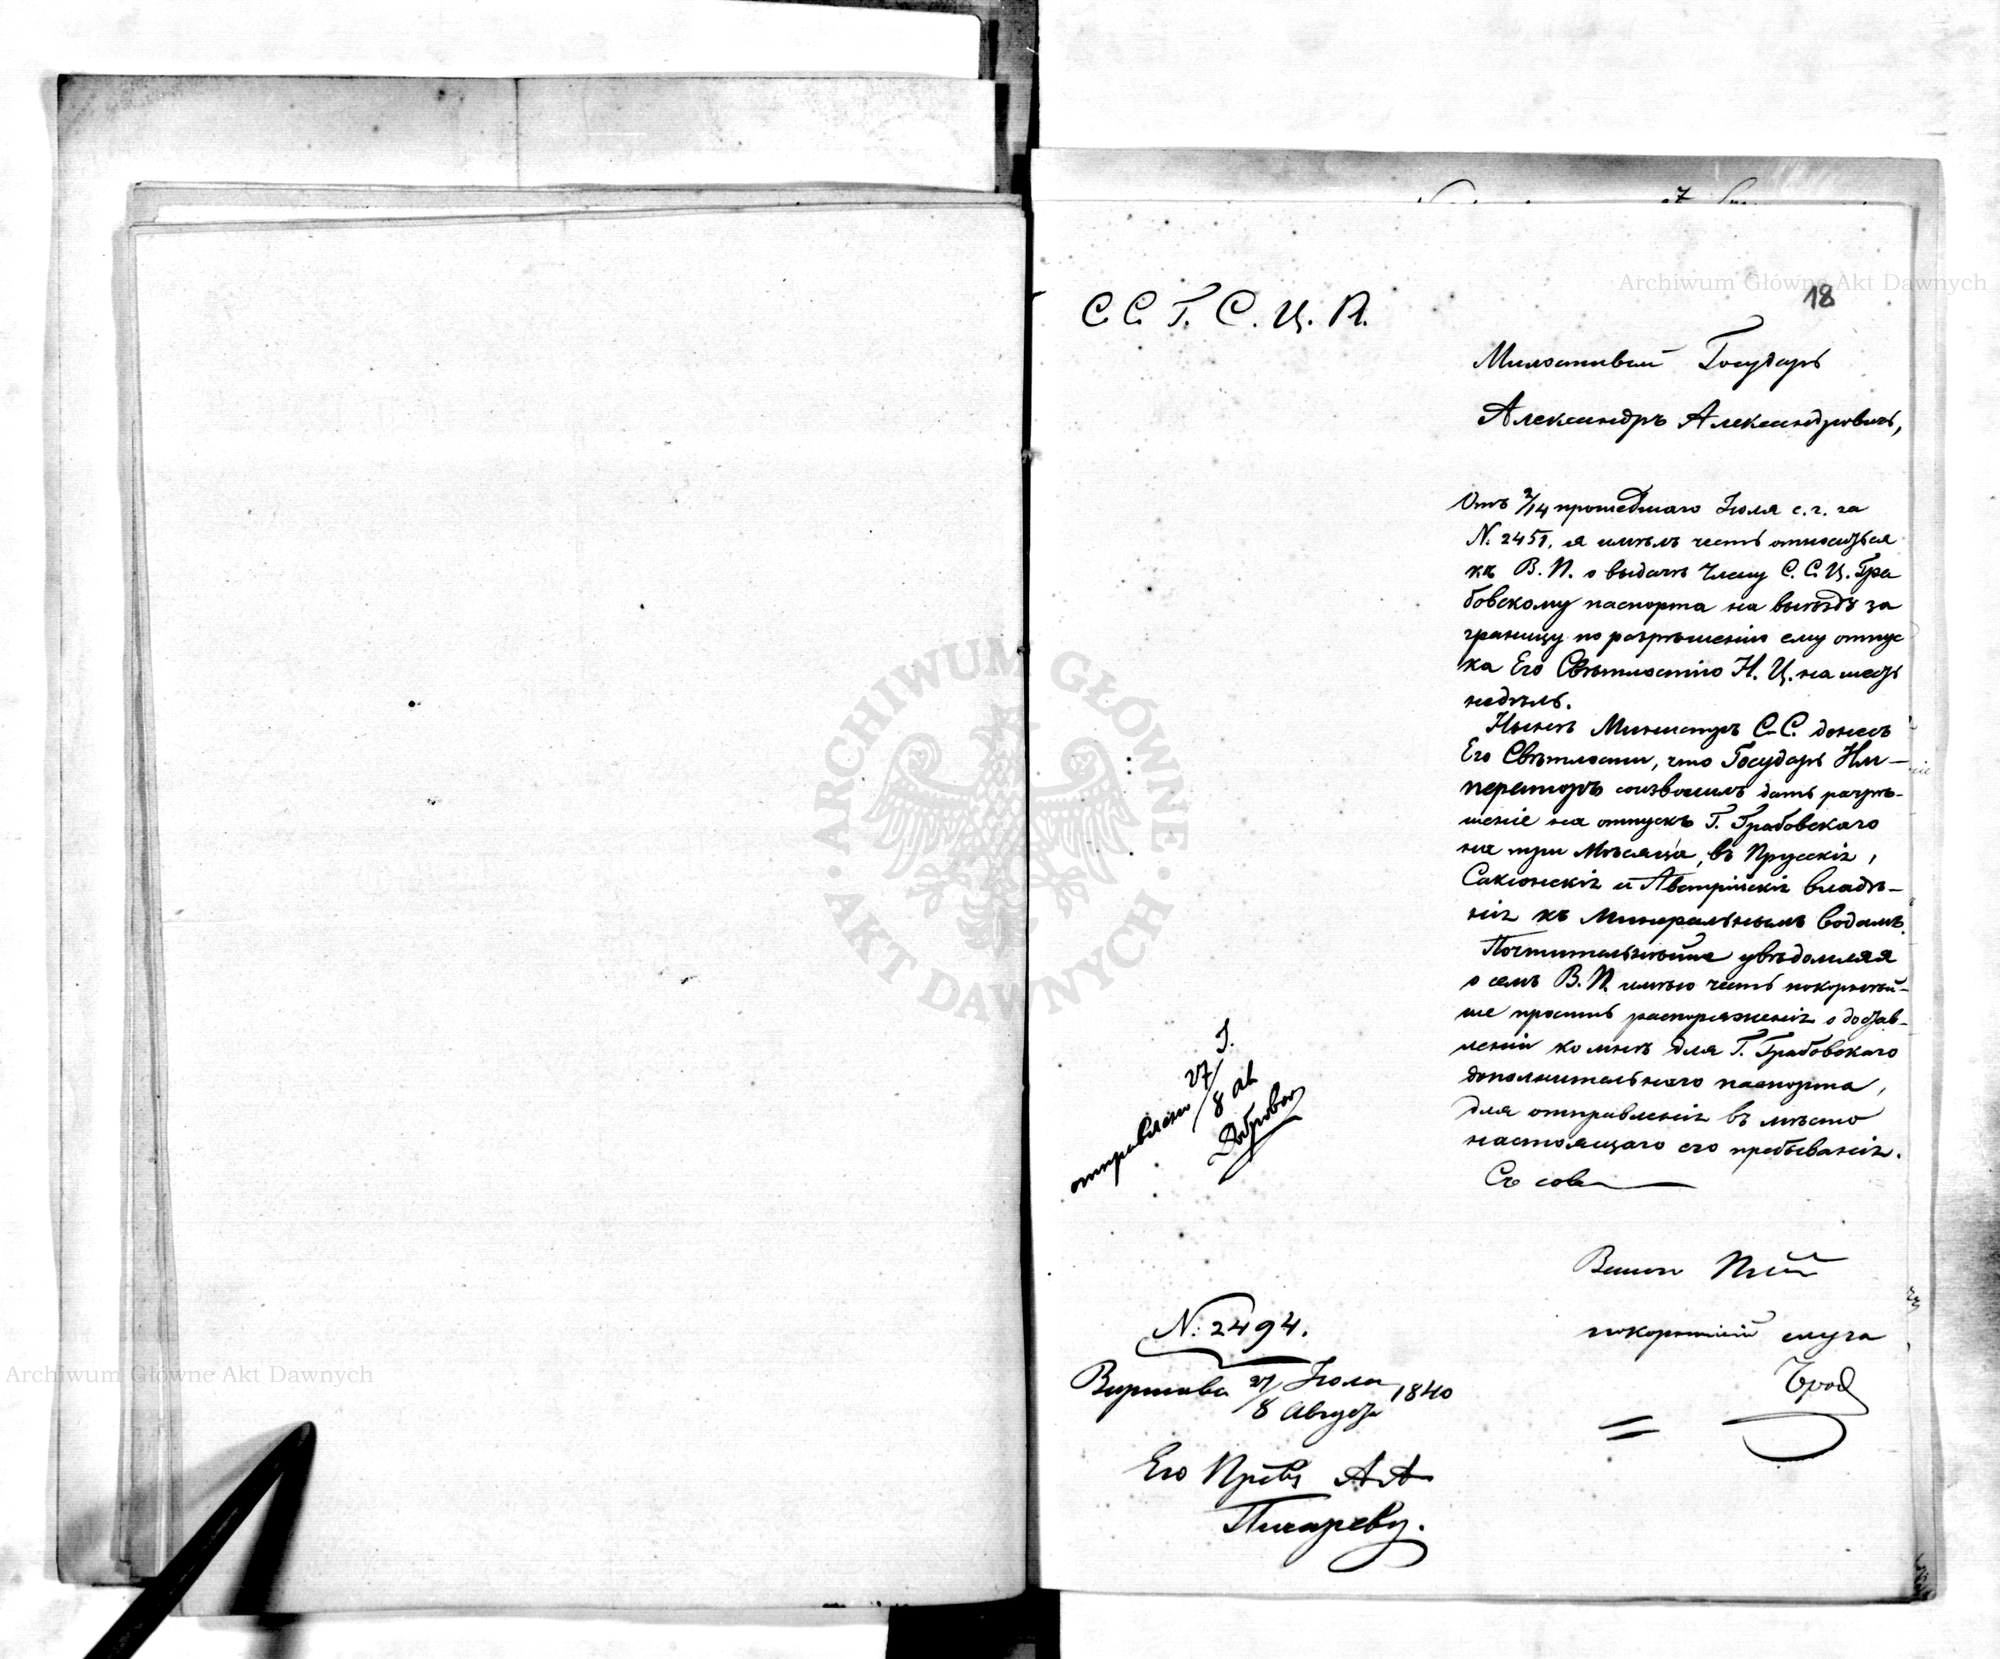 Archiwum Główne Akt Dawnych
18
С. С. Г. С. Ц. П.
Милостивый Государь
Александръ Александровичъ,
Отъ 2/14 прошедшаго Іюля с. г. за
N. 2451, я имѣлъ честь относиться
къ В. П. о выдачѣ Члену С. С. Ц. Гра
бовскому паспорта на выѣздъ за
границу по разрѣшенію ему отпус
ка Его Свѣтлостію Н. Ц. на шесть
недѣль.
Нынѣ Министръ С. С. донесъ
Его Свѣтлости, что Государь Им-
ператоръ соизволилъ дать разрѣ-
шеніе на отпускъ Г. Грабовскаго
на три мѣсяца, въ Прусскія,
Саксонскія и Австрійскія владѣ-
нія къ Минеральнымъ водамъ.
Почтительнѣйше увѣдомляя
о семъ В. П. имѣю честь покорнѣй-
ше просить распоряженія о достав-
леніи ко мнѣ для Г. Грабовскаго
дополнительнаго паспорта,
для отправленія въ мѣсто
настоящаго его пребыванія.
Съ сов
отправлено 27/8 Ав.
N: 2494.
Варшава 27/8 Іюля Августа 1840
покорнѣйшій слуга
Его Прев А. А.
Писареву.
ARCHIWUM GŁÓWNE AKT DAWNYCH
Archiwum Główne Akt Dawnych